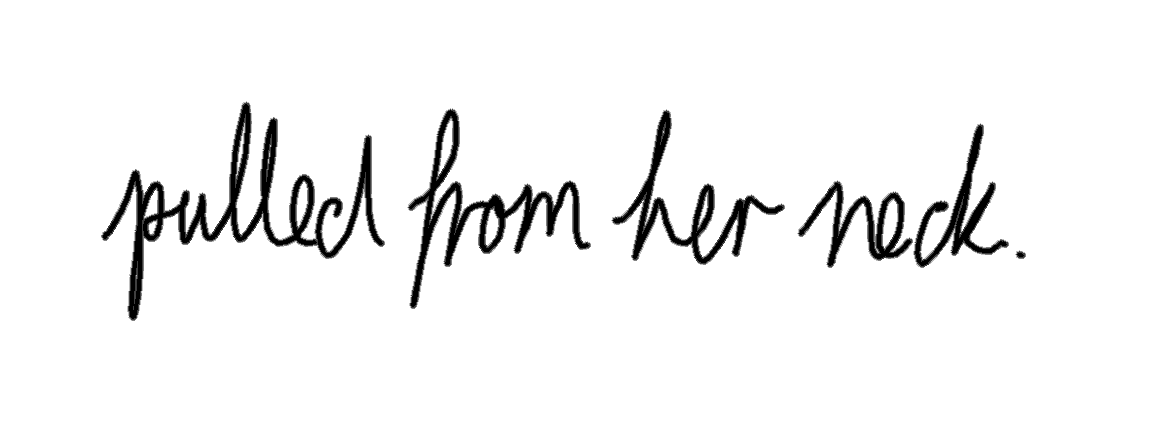 pulled from her neck.